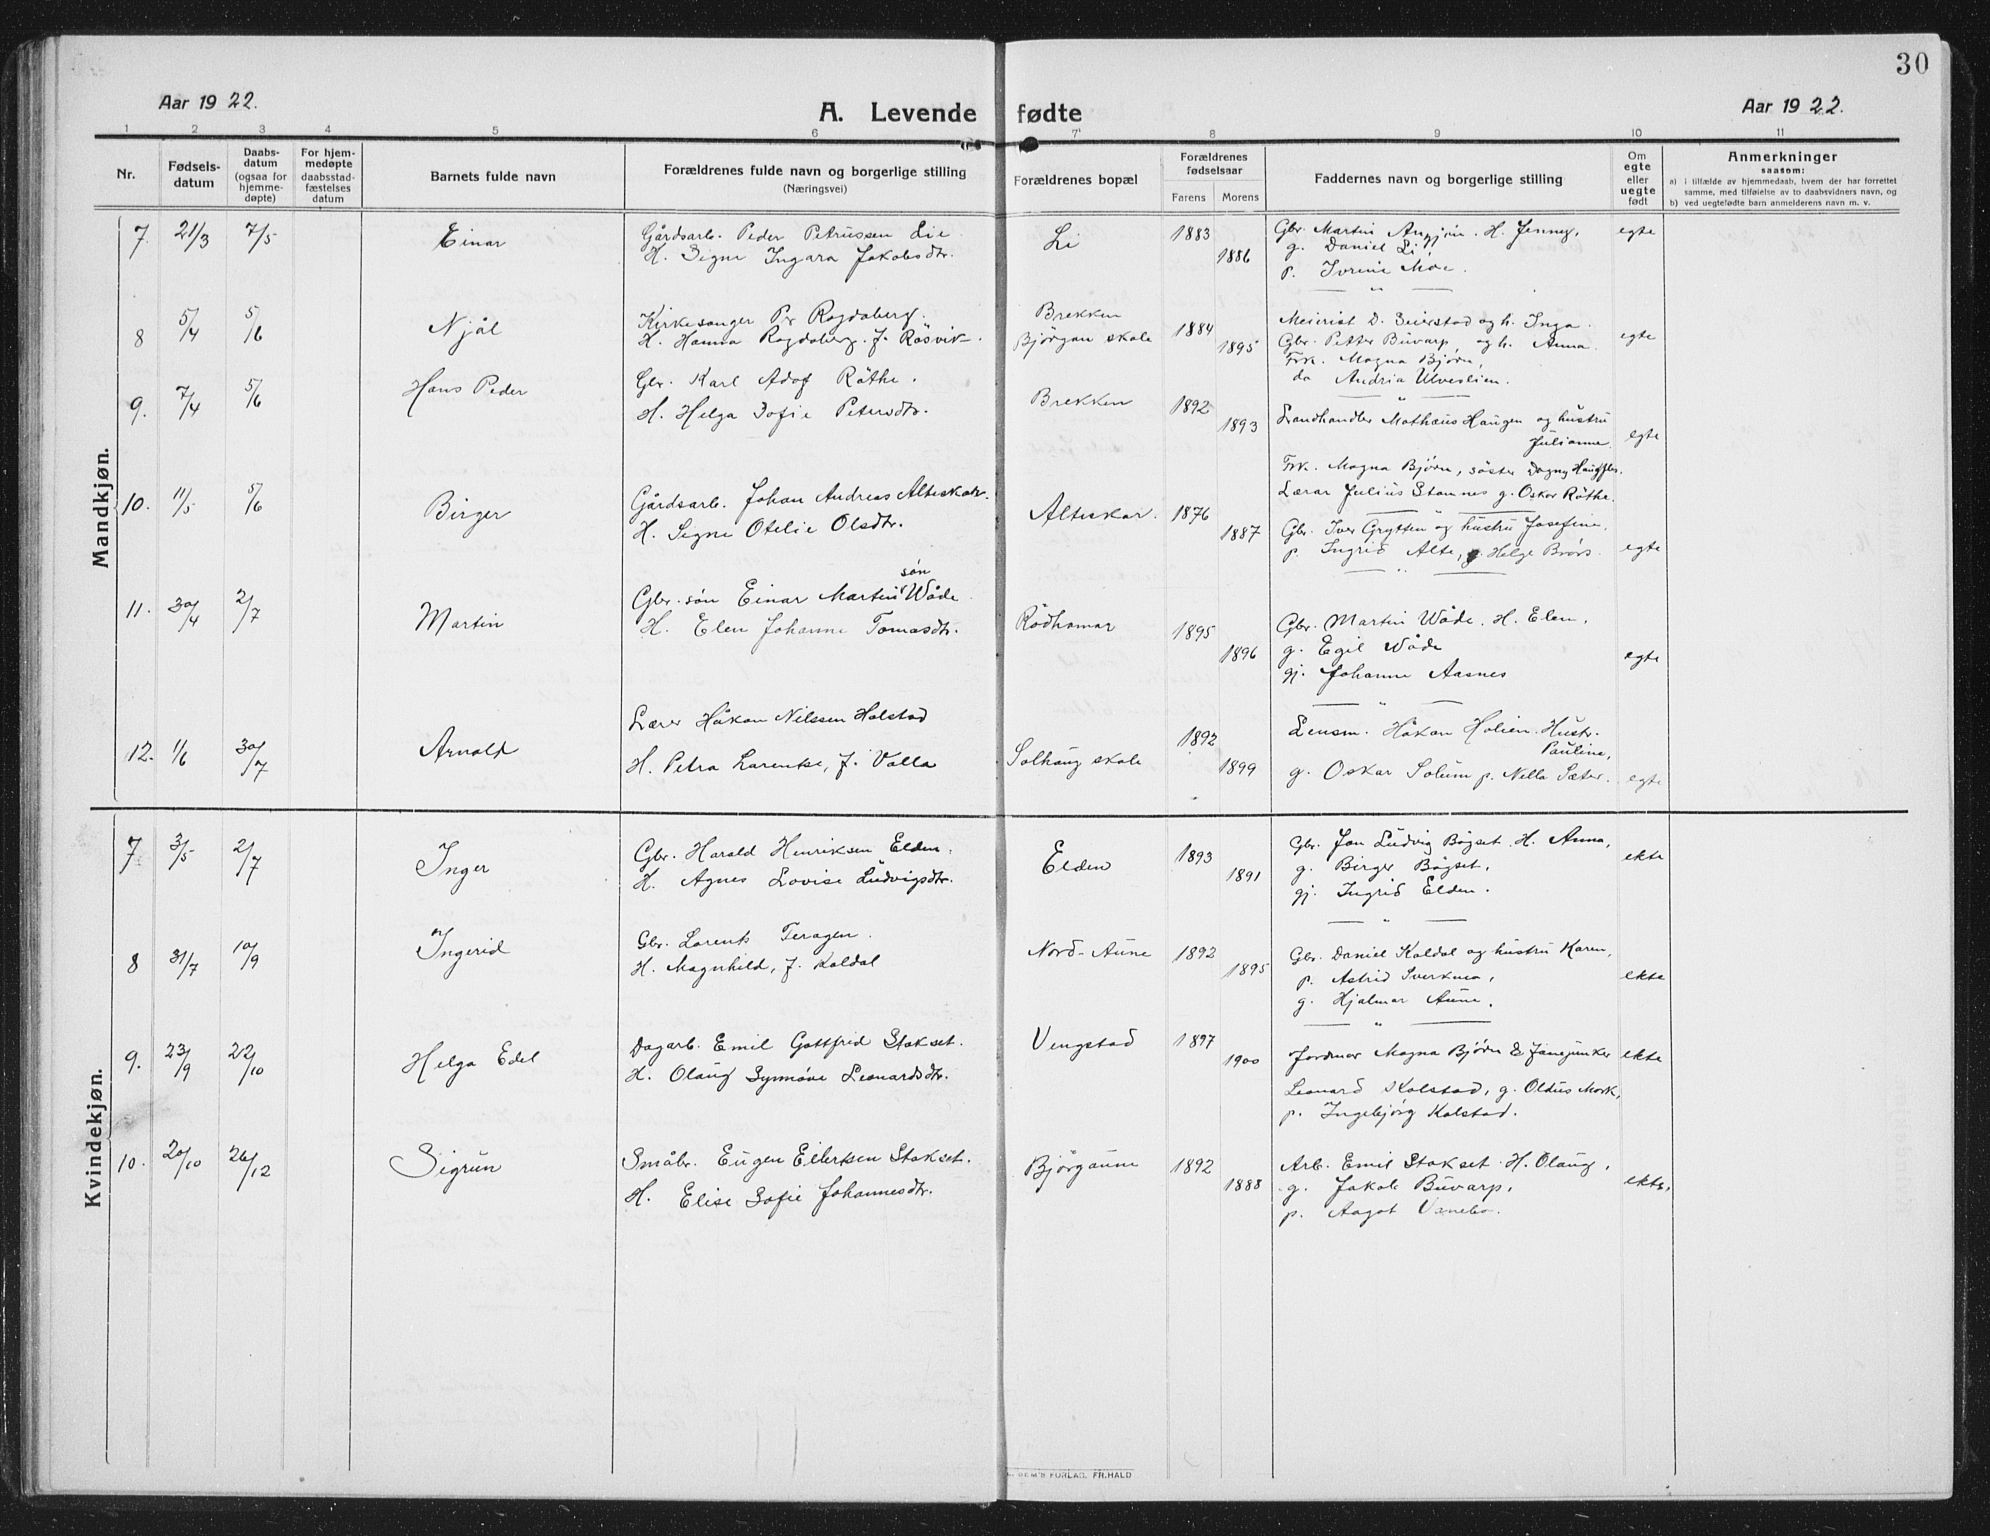 30
Aar 1922.
A. Levende fødte
Aar 1922.
1 2 3 4 5 6 7 8 9 10 11
Nr.
Fødsels-
datum
Daabs-
datum
(ogsaa for
hjemme-
døpte)
For hjem-
medøpte
daabsstad-
fæstelses
datum
Barnets fulde navn
Forældrenes fulde navn og borgerlige stilling
(Næringsvei)
Forældrenes bopæl
Forældrenes
fødselsaar
Farens Morens
Faddernes navn og borgerlige stilling
Om
egte
eller
uegte
født
Anmerkninger
saasom:
a) i tilfælde av hjemmedaab, hvem der har forrettet
samme, med tilføielse av to daabsvidners navn, og
b) ved uegtefødte barn anmelderens navn m. v.
Mandkjøn.
7. 21/3 7/5 Einar
Gårdsarb. Peder Petrussen Lie
H. Signe Ingara Jakobsdtr.
Li
1883
1886
Gbr. Martin H. Jenny,
g. Daniel Li
p. Ivrine Moe.
egte
8 5/4 5/6 Njål
Kirkesanger Pr Rogdaberg.
H. Hanna Rogdaberg. f. Røsvik.
Brekken
Bjørgan skole
1884
1895
Meierist D. Seierstad og h. Inga.
Gbr. Petter Buvarp og h. Anna.
Frk. Magna Bjørn,
do Andria Ulveslien.
egte
9. 7/4 5/6 Hans Peder
Gbr. Karl Adof Röthe.
H. Helga Sofie Petersdtr.
Brekken
1892
1893
Landhandler Mathæus Haugen og hustru
Julianne.
Frk. Magna Bjørn, söster Dagny
Lærar Julius Stamnes g. Oskar Röthe.
egte
10. 11/5 5/6 Birger
Gårdsarb. Johan Andreas Alteskar.
H. Signe Otelie Olsdtr.
Alteskar.
1876
1887
Gbr. Iver Grytten og hustru Josefine.
p. Ingrid Alte, g. Helge Brörs.
egte
11. 30/4 2/7 Martin
søn
Gbr. søn Einar Martin Wåde.
H. Elen Johanne Tomasdtr.
Rödhamar
1895
1896
Gbr. Martin Wåde. H. Elen,
g. Egil Wåde
gj. Johanne Aasnes
egte
12. 1/6 30/7 Arnold
Lærer Håkon Nilssen Holstad
H. Petra Larentse, f. Valla
Solhaug skole
1892
1899
Lensm. Håkon Holien. Hustr.
Pauline,
g. Oskar Solum p. Nella Sæter.
egte
Kvindekjøn.
7 3/5 2/7 Inger
Gbr. Harald Henriksen Elden.
H. Agnes Lovise Ludvigsdtr.
Elden
1893
1891
Gbr. Jon Ludvig Bøgset. H. Anna,
g. Birger Bøgset,
gj. Ingrid Elden.
ekte
8 31/7 10/9 Ingerid
Gbr. Lorents Teragen.
H. Magnhild, f. Kaldal
Nord-Aune
1892
1895
Gbr. Daniel Kaldal og hustru Karen,
p. Astrid Sverkmo,
g. Hjalmar Aune.
ekte
9. 23/9 22/10 Helga Edel
Dagarb. Emil Gottfrid Stokset.
H. Olaug Synnøve Leonardsdtr.
Vengstad
1897
1900
Jordmor Magna Bjørn & Fanejunker
Leonard Kolstad, g. Oldus Mork,
p. Ingebjørg Kolstad.
ekte
10. 20/10 26/12 Sigrun
Småbr. Eugen Eilertsen Stokset.
H. Elise Sofie Johannesdtr.
Bjørgaune
1892
1888
Arb. Emil Stokset. H. Olaug,
g. Jakob Buvarp,
p. Aagot Vanebo.
ekte.
FORLAG. FR.HALD